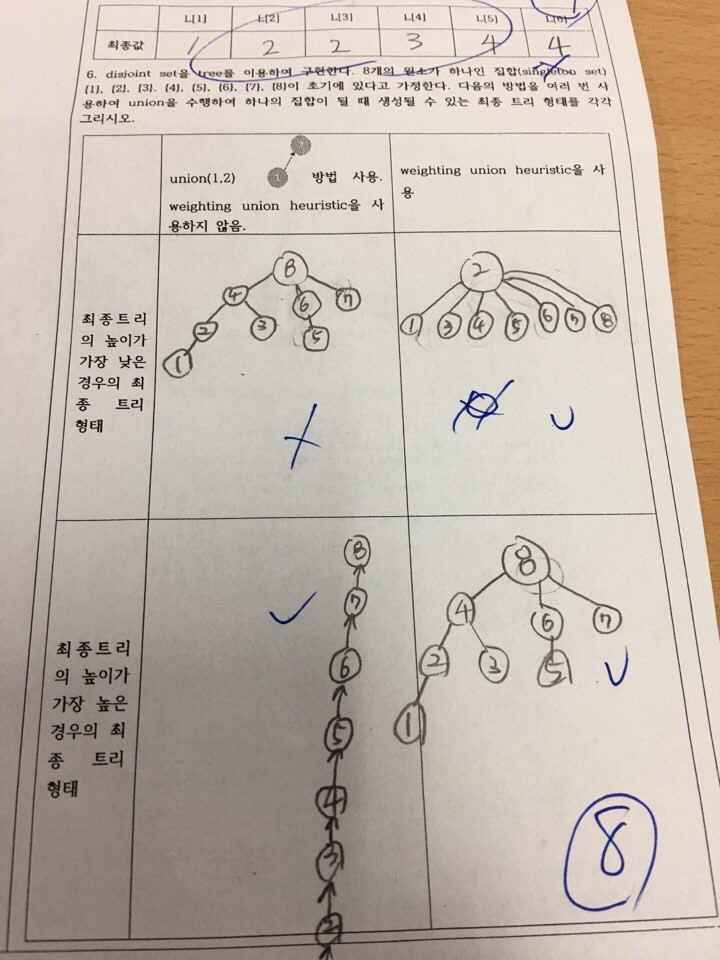 L[1] L[2] L[3] L[4] L[5] L[6]
최종값 1 2 2 3 4 4
6. disjoint set을 tree를 이용하여 구현한다. 8개의 원소가 하나인 집합(singleton set)
{1}, {2}, {3}, {4}, {5}, {6}, {7}, {8}이 초기에 있다고 가정한다. 다음의 방법을 여러 번 사
용하여 union을 수행하여 하나의 집합이 될 때 생성될 수 있는 최종 트리 형태를 각각
그리시오.
union(1,2) 1 2 방법 사용.
weighting union heuristic을 사
용하지 않음.
weighting union heuristic을 사
용
최종트리
의 높이가
가장 낮은
경우의 최
종 트리
형태
8
4 6 7
2 3 5
1
2
1 3 4 5 6 7 8
최종트리
의 높이가
가장 높은
경우의 최
종 트리
형태
8
7
6
5
4
3
2
8
4 6 7
2 3 5
1
8